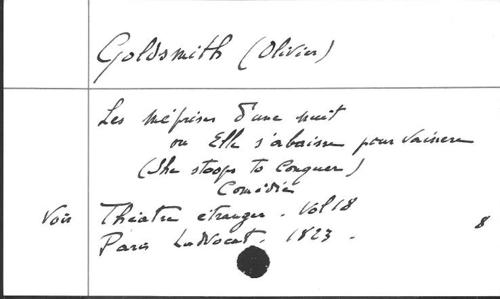 Goldsmith (Olivier)
Les méprises d'une nuit
ou Elle s'abaisse pour vaincre
(She stoops to Conquer)
Comédie
Voir Théatre étranger. Vol 18
Paris Ladvocat. 1823. 8